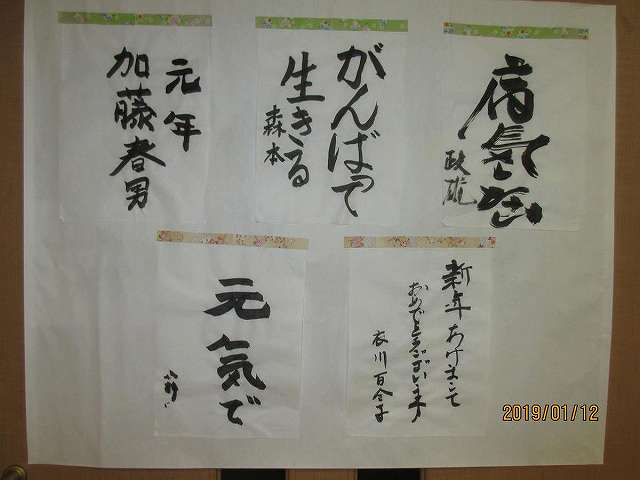 元年
加藤春男
がんばって
生きる
森本
病気
政蔵
元気で
新年あけまして
おめでとうございます
衣川百合子
2019/01/12